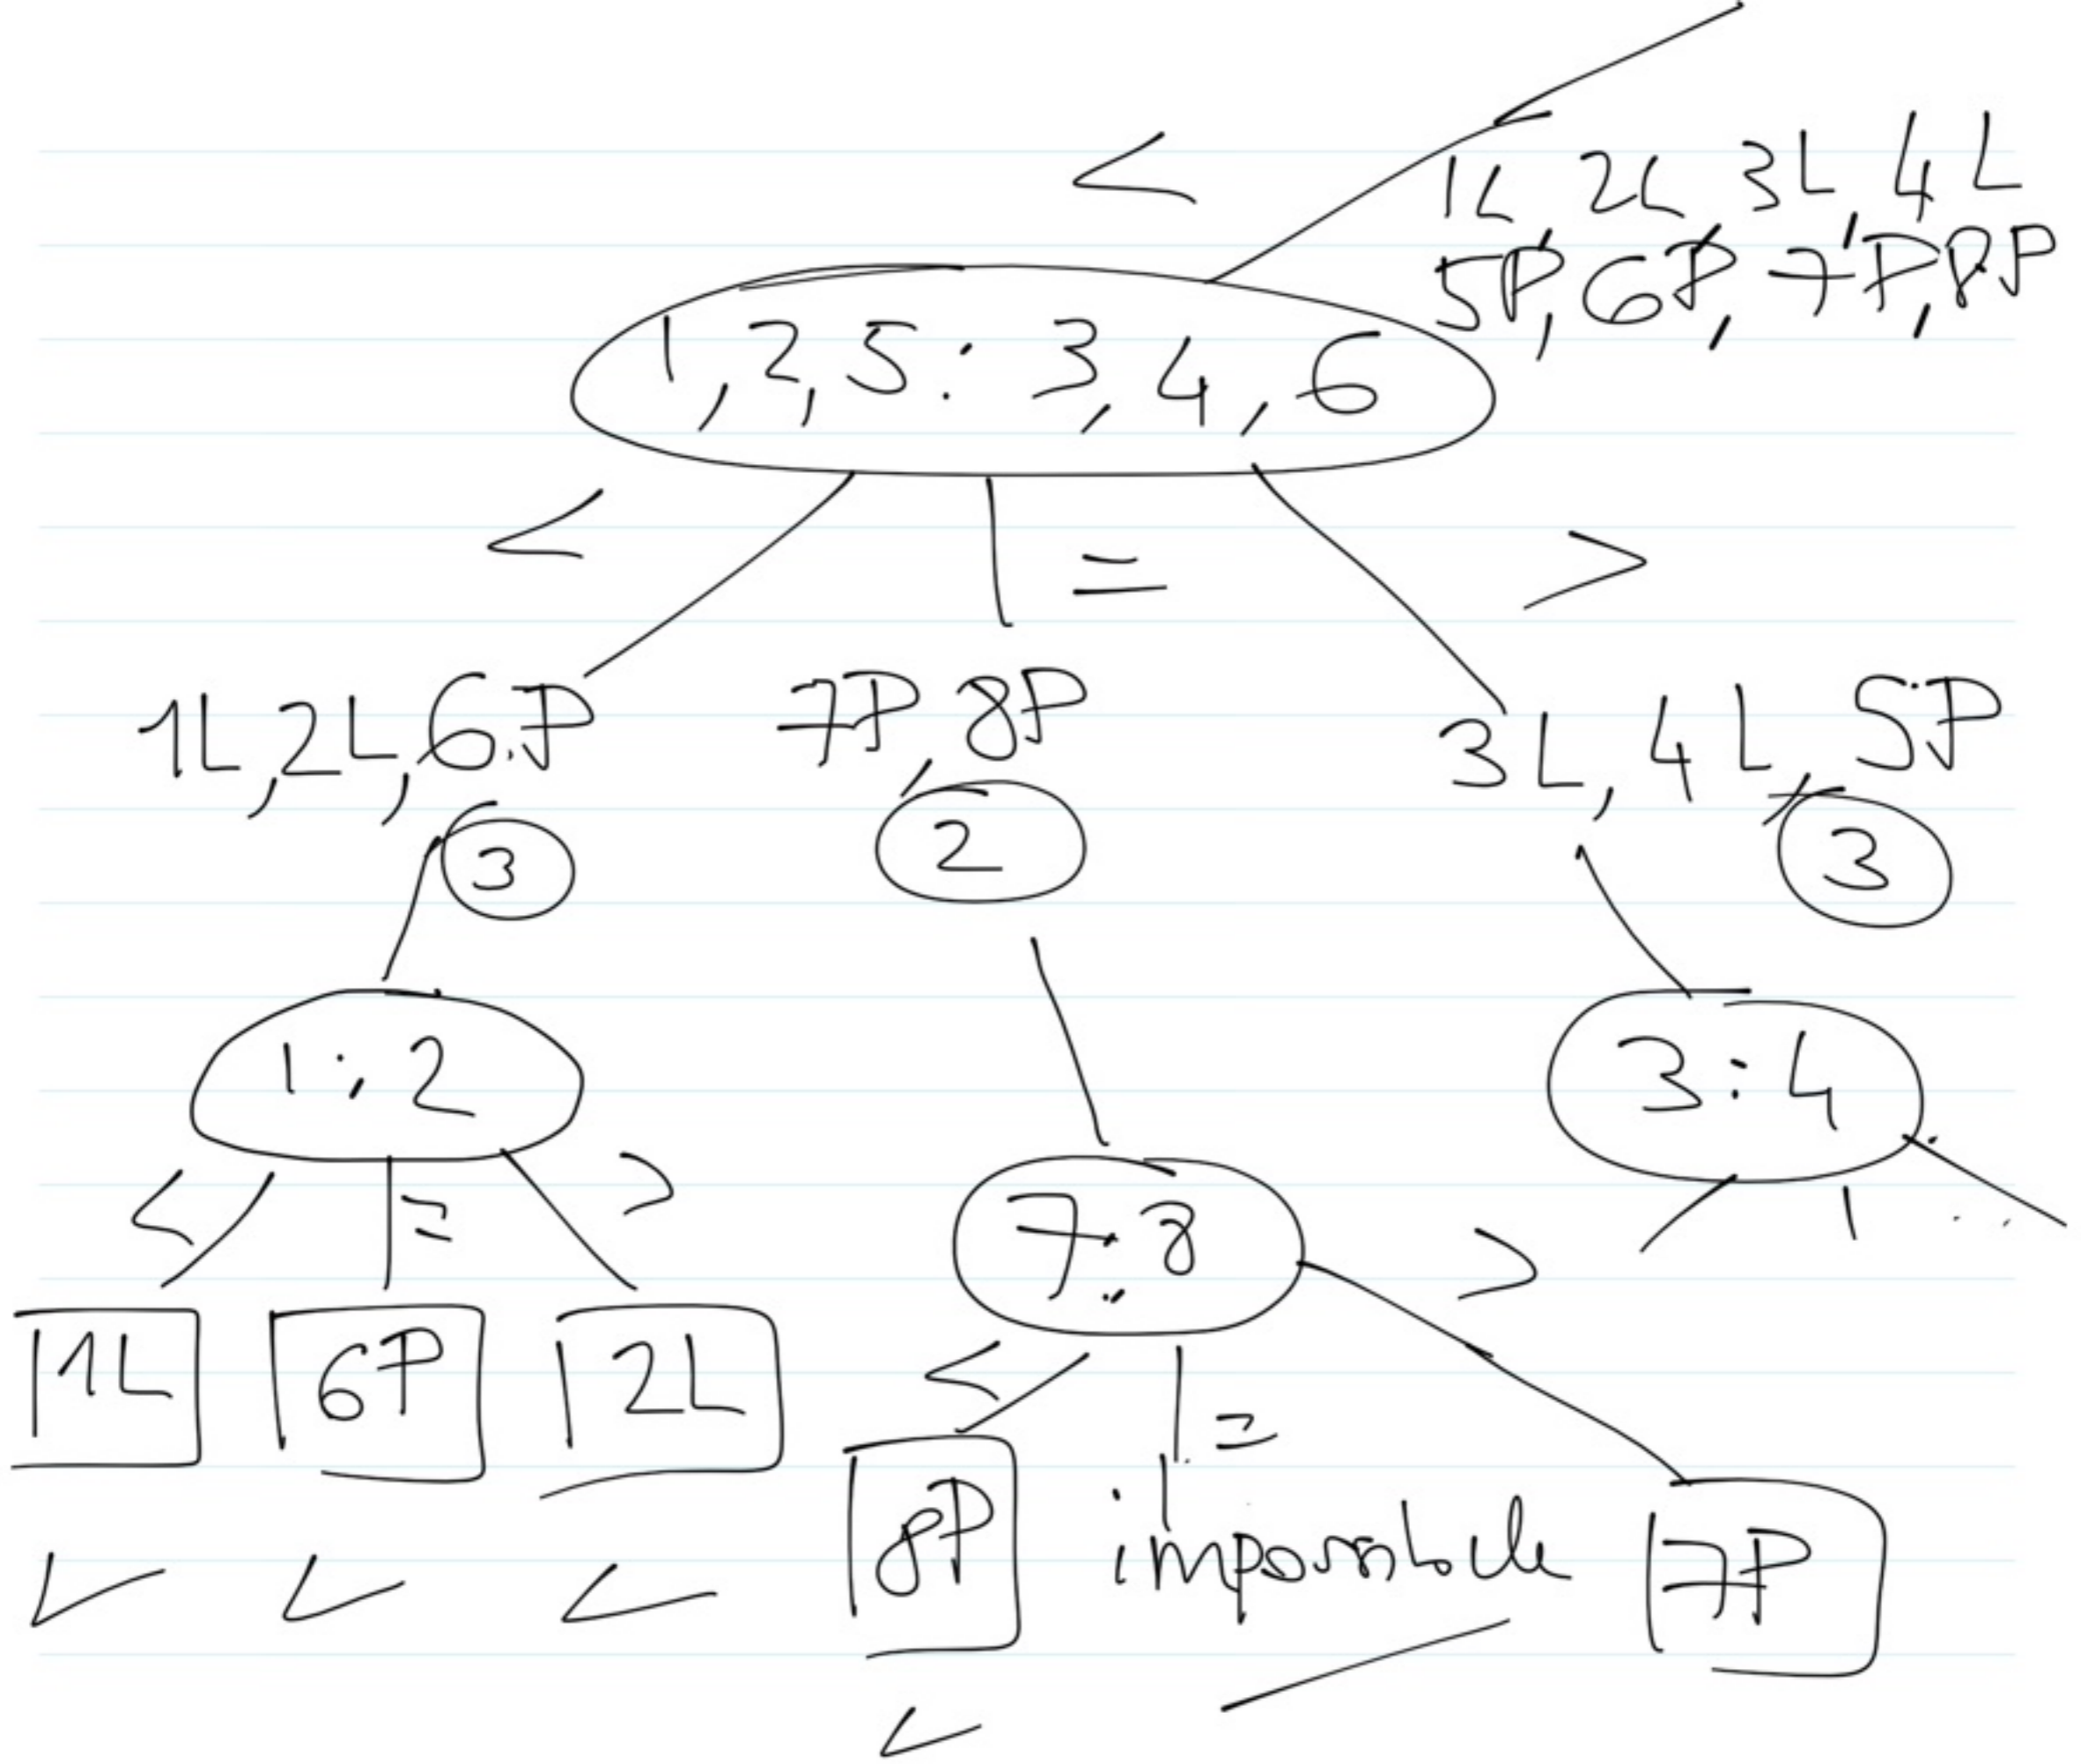 <
1L, 2L, 3L, 4L
5P, 6P, 7P, 8P
1, 2, 5 : 3, 4, 6
< = >
1L, 2L, 6P 7P, 8P 3L, 4L, 5P
3 2 3
1 : 2 3 : 4
< = > 7 : 8 >
1L 6P 2L < =
8P impossible 7P